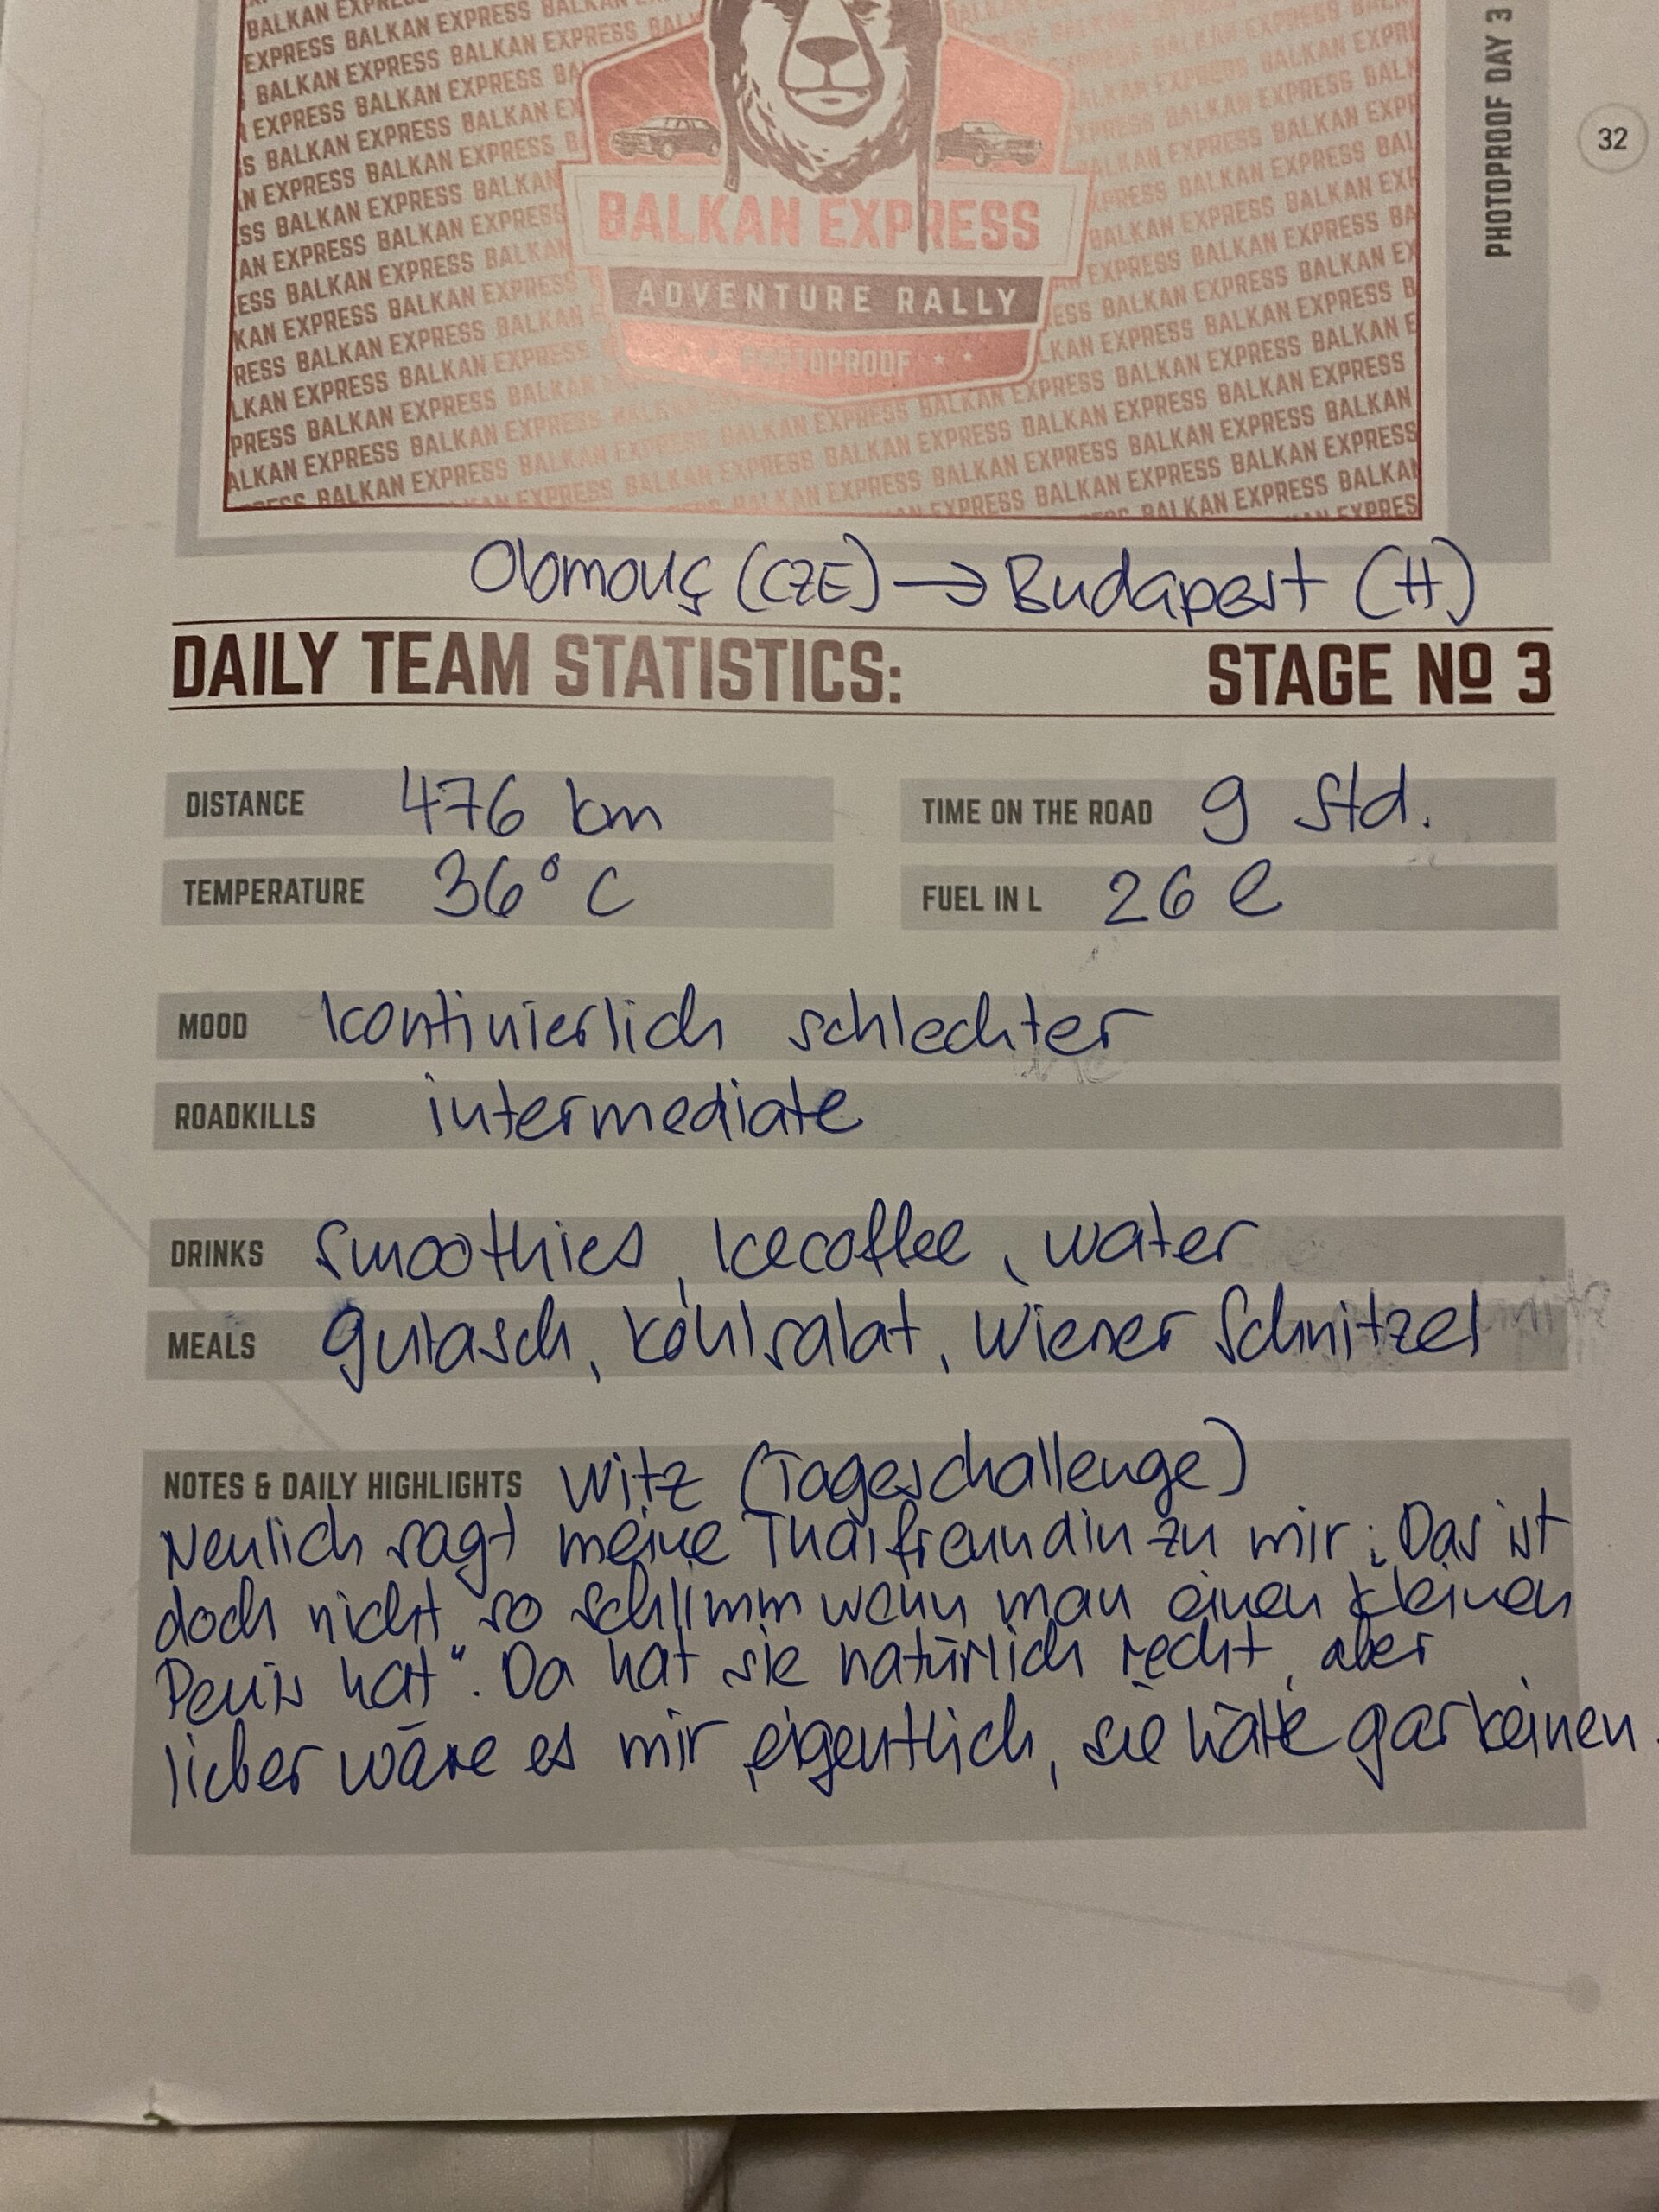 BALKAN EXPRESS BALKAN EXPRESS BALKAN
EXPRESS BALKAN EXPRESS BALKAN EXPRESS
BALKAN EXPRESS BALKAN EXPRESS
PHOTOPROOF DAY 3
32
BALKAN EXPRESS
ADVENTURE RALLY
PHOTOPROOF
Olomouç (CZE) → Budapest (H)
DAILY TEAM STATISTICS: STAGE Nº 3
DISTANCE 476 km TIME ON THE ROAD 9 Std.
TEMPERATURE 36° C FUEL IN L 26 l
MOOD kontinierlich schlechter
ROADKILLS intermediate
DRINKS Smoothies, Icecoffee, water
MEALS Gulasch, Kohlsalat, Wiener Schnitzel
NOTES & DAILY HIGHLIGHTS Witz (Tageschallenge)
Neulich sagt meine Thaifreundin zu mir: Das ist
doch nicht so schlimm wenn man einen kleinen
Penis hat". Da hat sie natürlich recht, aber
lieber wäre es mir eigentlich, sie hätte gar keinen.